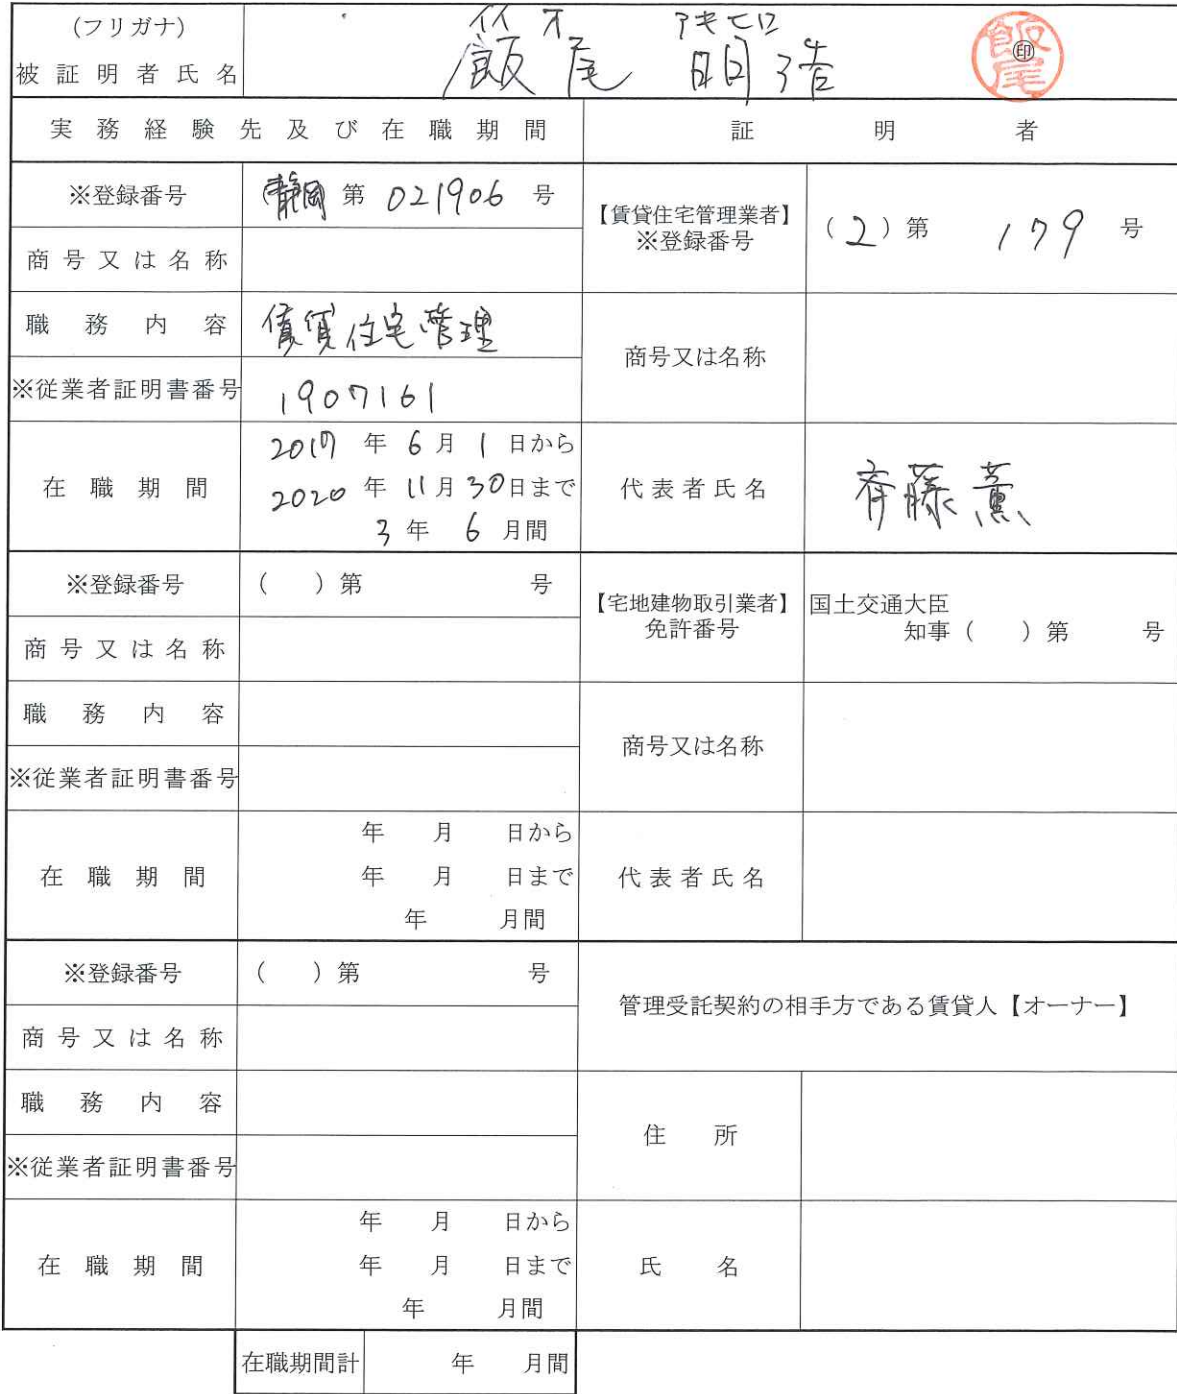 (フリガナ) イイオ アキヒロ
被証明者氏名 飯尾 明浩 ㊞ 飯尾
実務経験先及び在職期間 証明者
※登録番号 (静岡 第 021906 号
【賃貸住宅管理業者】
※登録番号 (2)第 179 号
商号又は名称
職務内容 賃貸住宅管理
商号又は名称
※従業者証明書番号 1907161
在職期間
2017 年 6 月 1 日から
2020 年 11 月 30 日まで
3 年 6 月間
代表者氏名 斉藤 薫
※登録番号 ( )第 号
【宅地建物取引業者】
免許番号
国土交通大臣
知事( )第 号
商号又は名称
職務内容
商号又は名称
※従業者証明書番号
在職期間
年 月 日から
年 月 日まで
年 月間
代表者氏名
※登録番号 ( )第 号
管理受託契約の相手方である賃貸人【オーナー】
商号又は名称
職務内容
住所
※従業者証明書番号
在職期間
年 月 日から
年 月 日まで
年 月間
氏名
在職期間計 年 月間